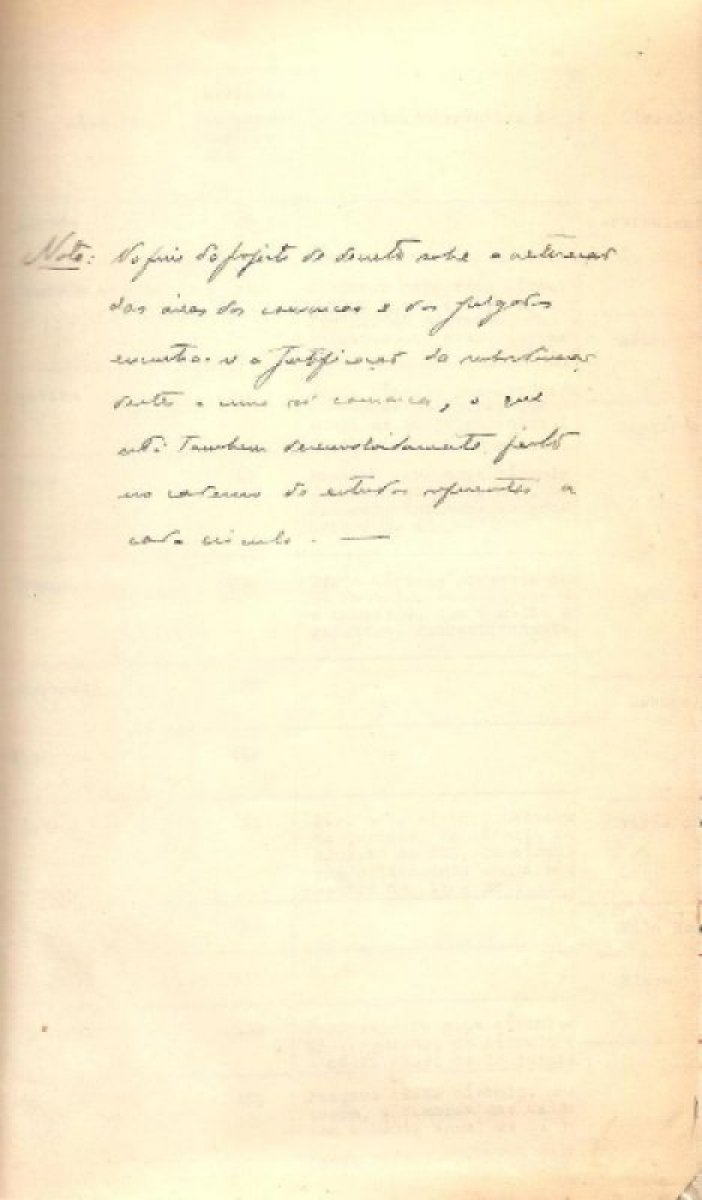 Nota: No fim do projecto de decreto sobre a alteração
das áreas das comarcas e dos julgados
encontra-se a justificação da
destes a uma só comarca, o que
está também desenvolvidamente feito
no caderno de estudos referentes a
cada círculo. —